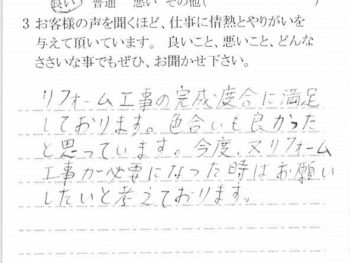 良い 普通 悪い その他( )
3 お客様の声を聞くほど、仕事に情熱とやりがいを
与えて頂いています。 良いこと、悪いこと、どんな
ささいな事でもぜひ、お聞かせ下さい。
リフォーム工事の完成度合に満足
しております。色合いも良かった
と思っています。今度、又リフォーム
工事が必要になった時はお願い
したいと考えております。